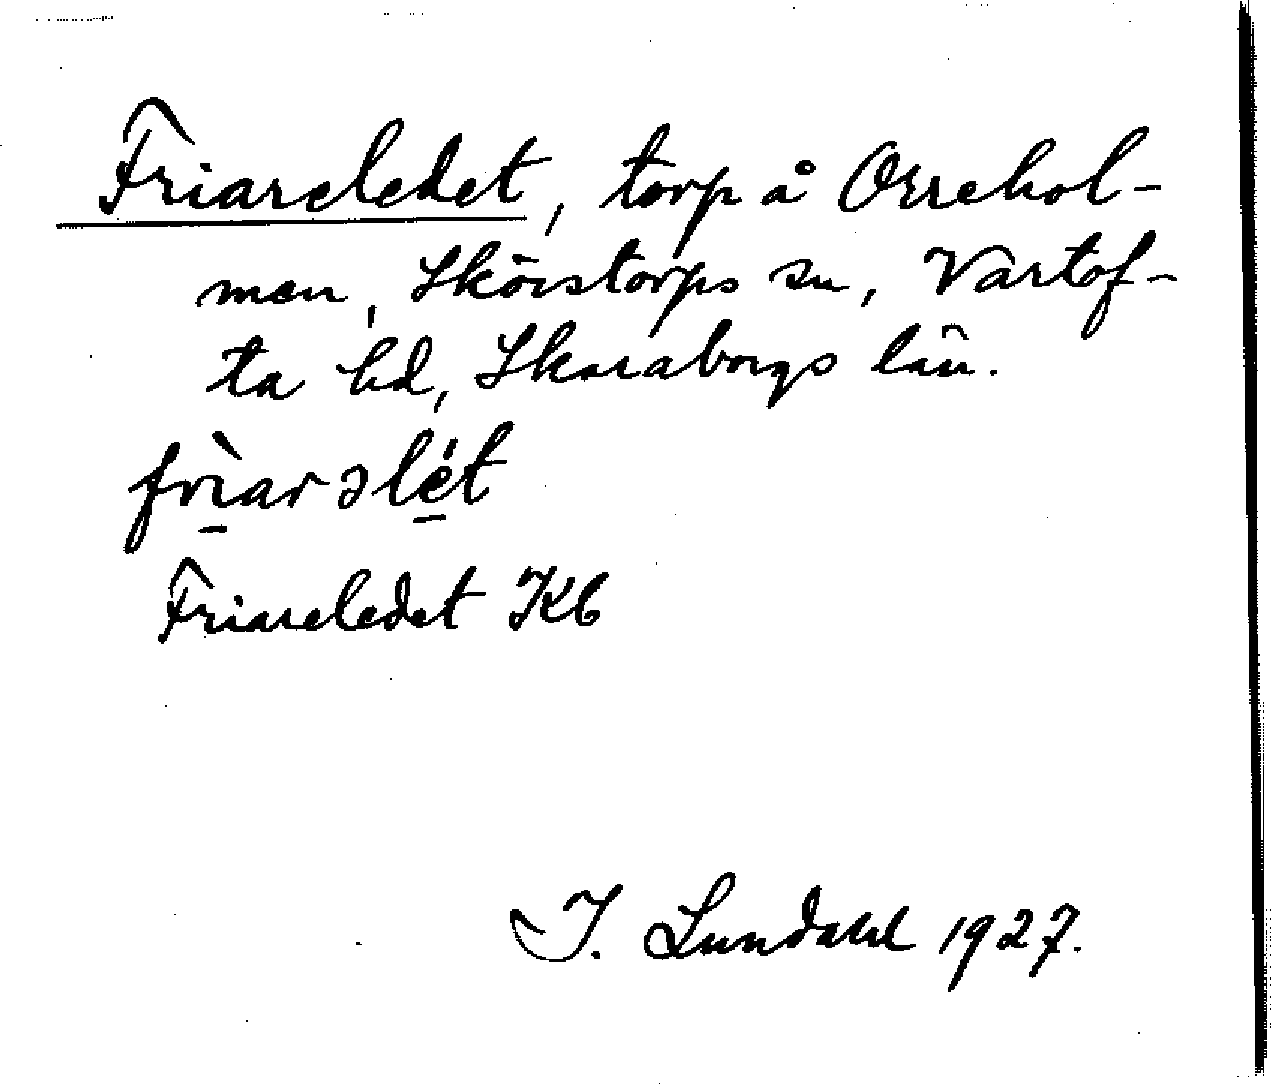 Friareledet, torp å Orrehol-
men, Skörstorps sn, Vartof-
ta hd, Skaraborgs län.
frìarəlét
Friareledet Kb
I. Lundahl 1927.